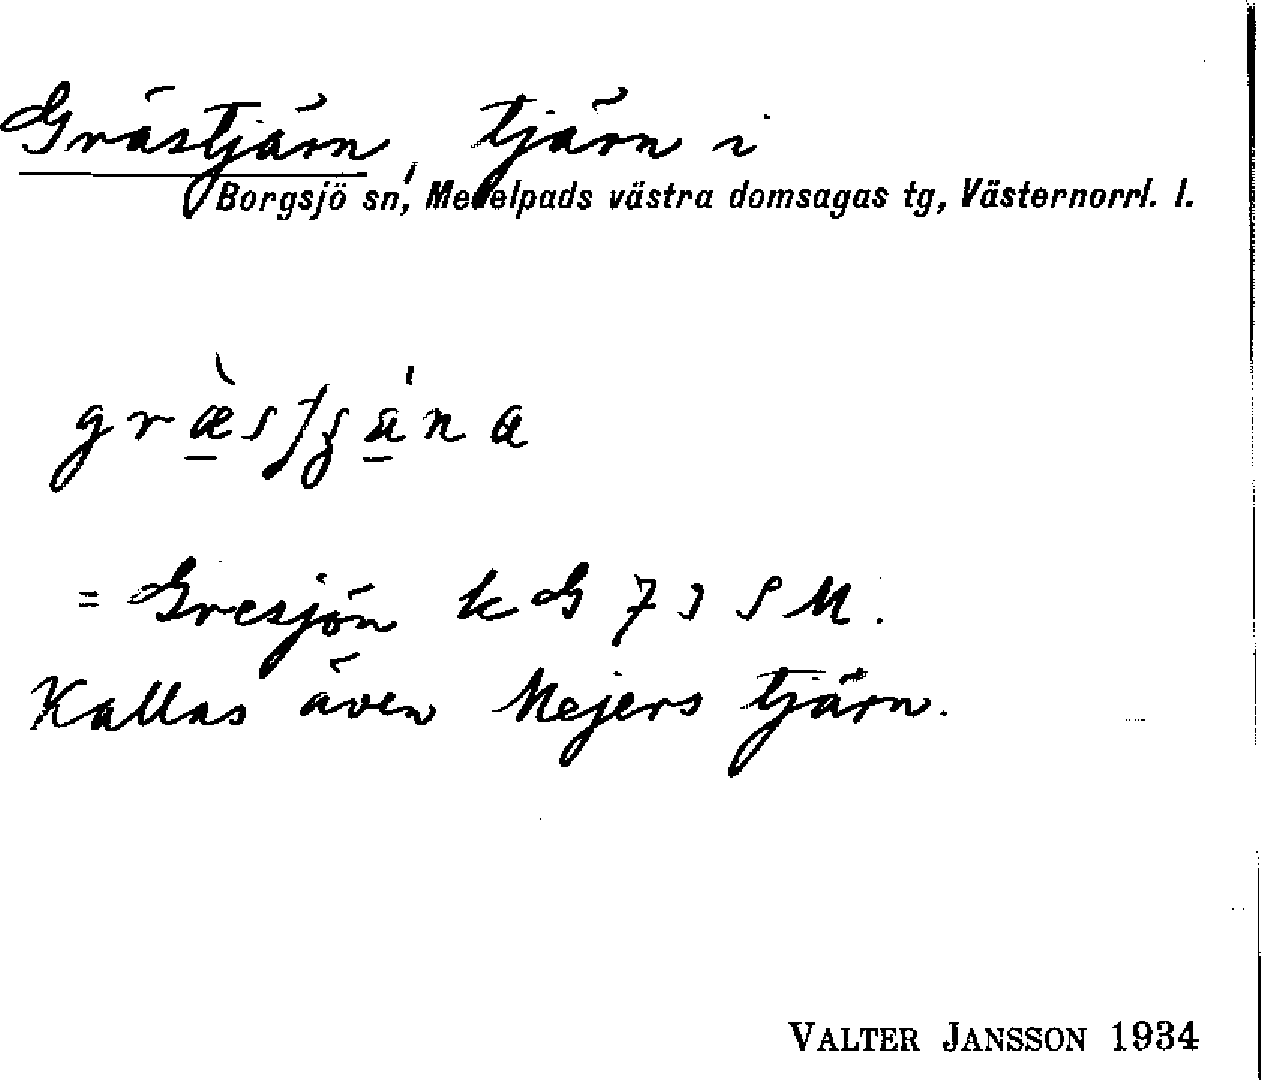 Grästjärn, tjärn i
Borgsjö sn, Medelpads västra domsagas tg, Västernorrl. l.
= Gresjön k G 73 S M.
Kallas även Mejers tjärn.
VALTER JANSSON 1934